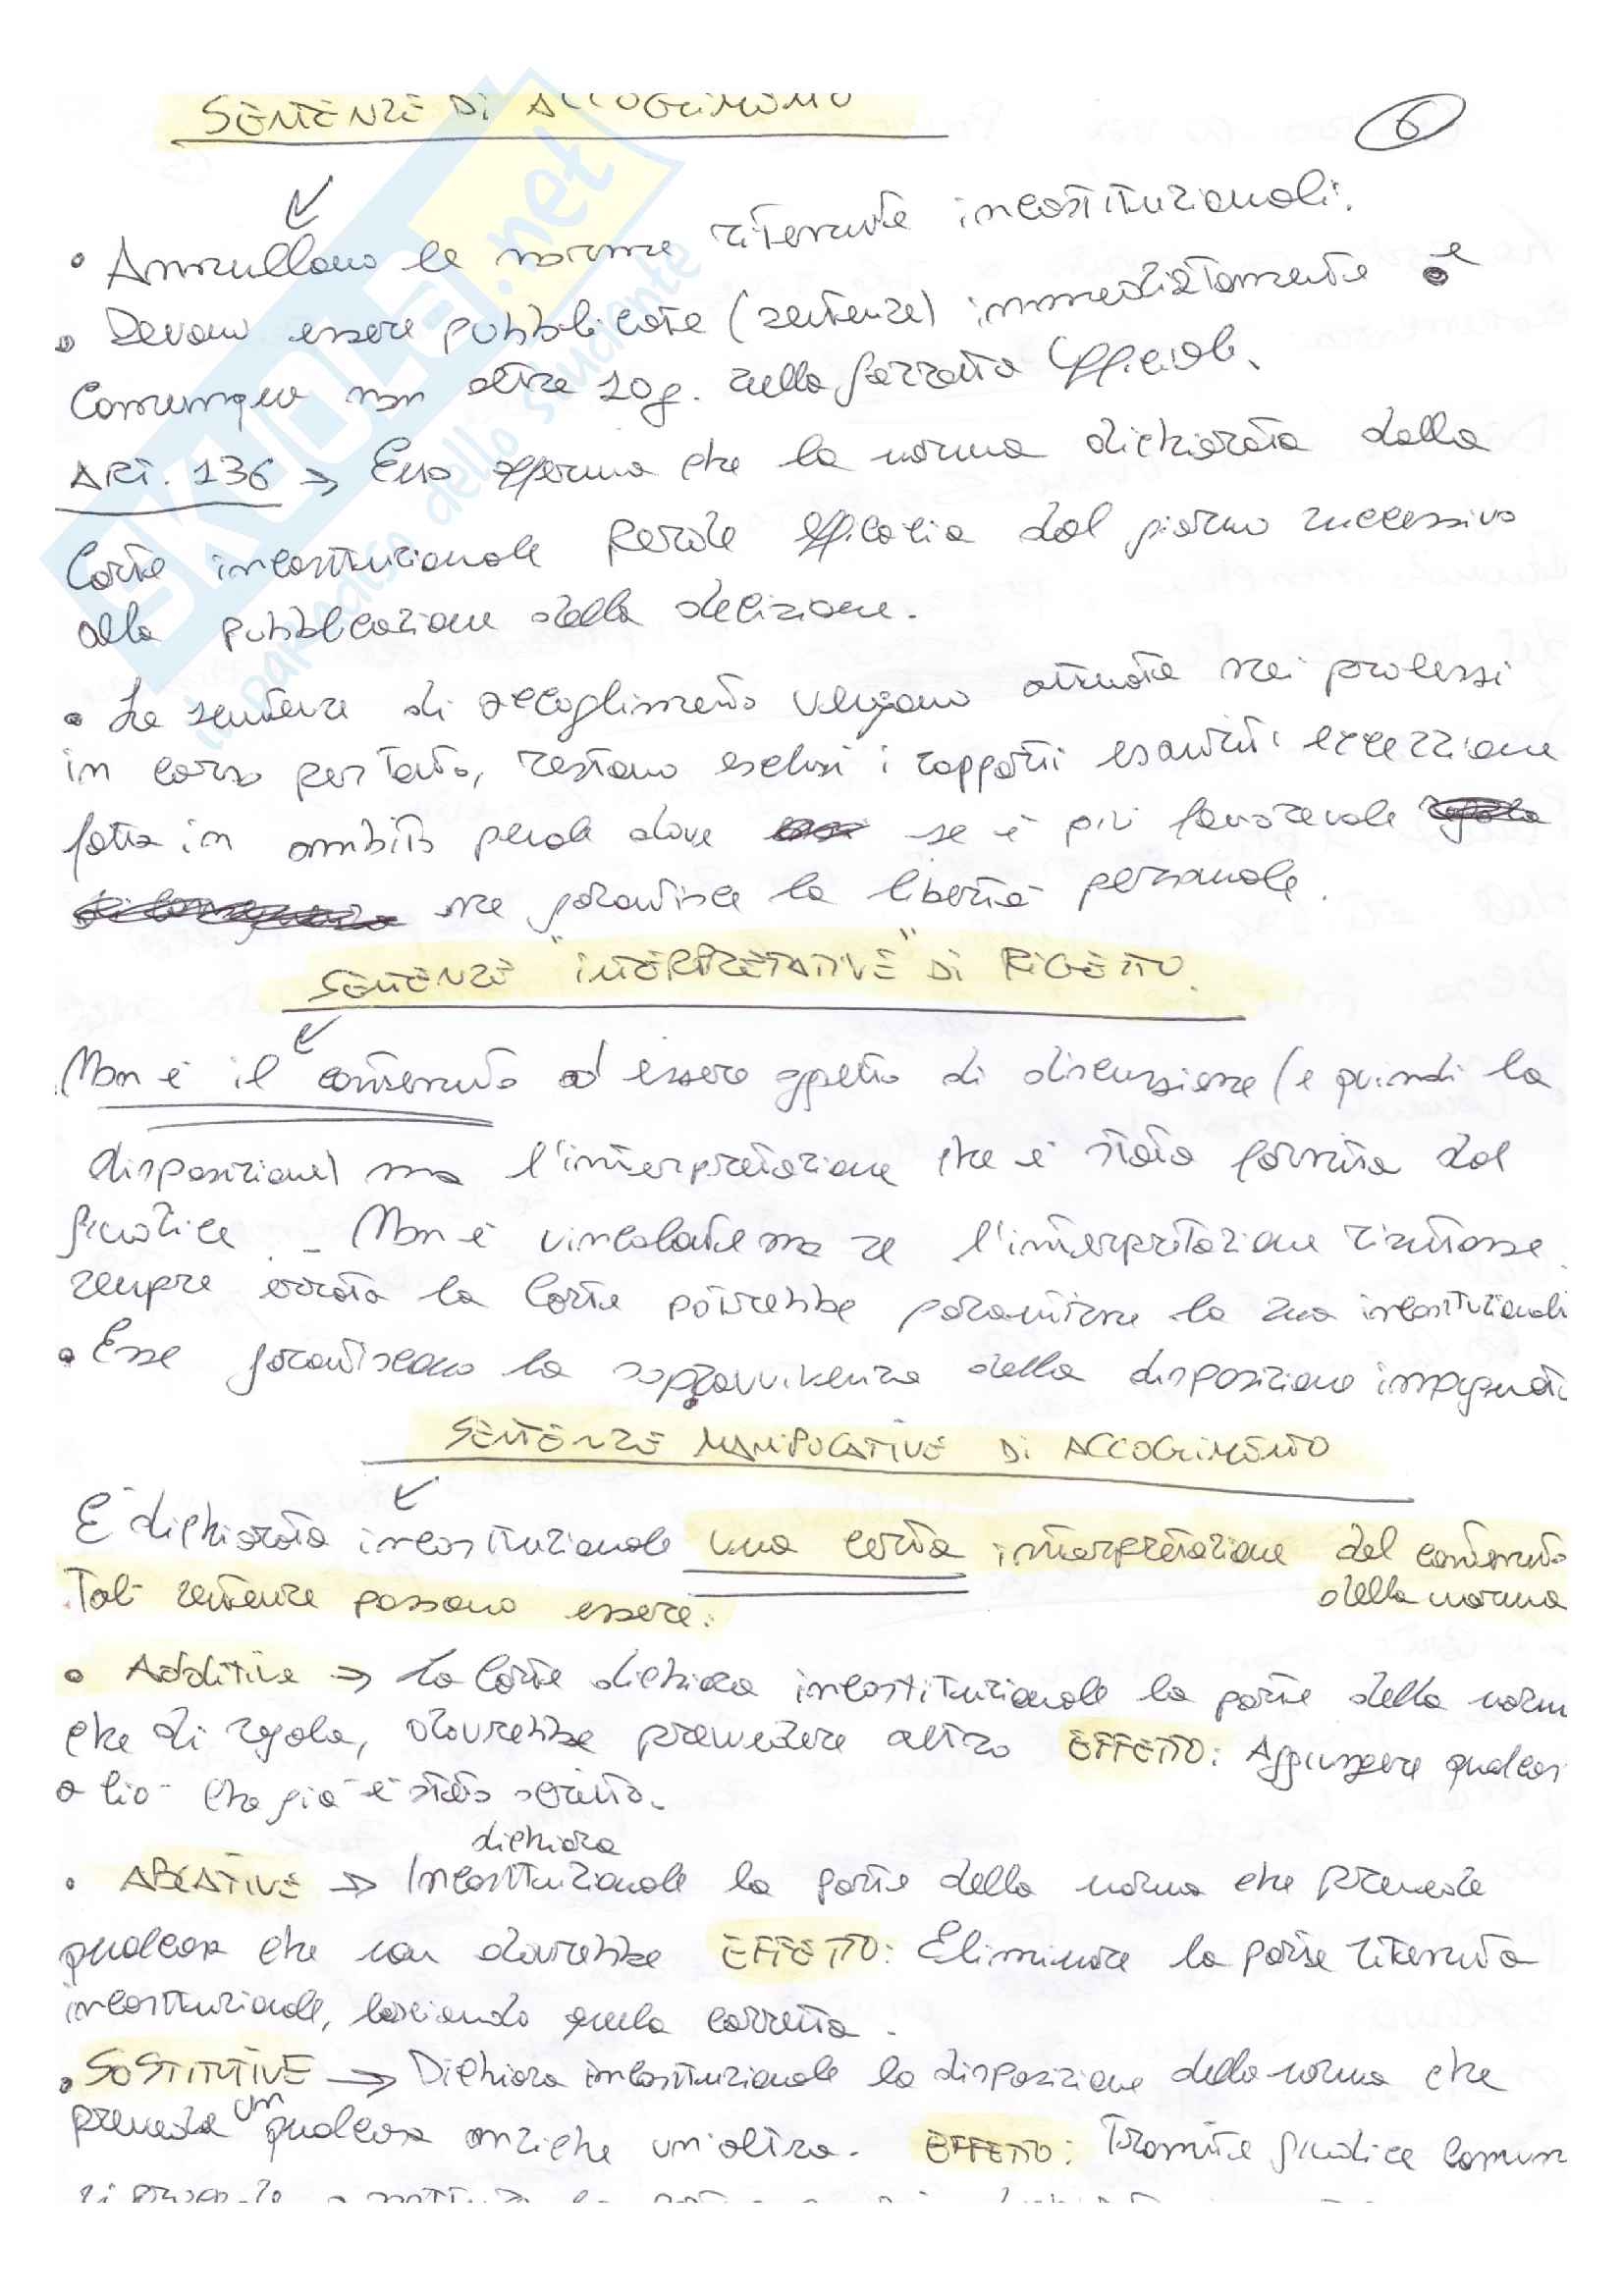 SENTENZE DI ACCOGLIMENTO
6
• Annullano le norme ritenute incostituzionali.
• Devono essere pubblicate (sentenze) immediatamente e
Comunque non oltre 10 g. sulla Gazzetta Ufficiale.
ART. 136 → Esso afferma che la norma dichiarata dalla
Corte incostituzionale perde efficacia dal giorno successivo
alla pubblicazione della decisione.
• Le sentenze di accoglimento vengono attuate nei processi
in corso pertanto, restano esclusi i rapporti esauriti eccezione
fatta in ambito penale dove se è più favorevole
ne garantisce la libertà personale.
SENTENZE "INTERPRETATIVE" DI RIGETTO.
Non è il contenuto ad essere oggetto di discussione (e quindi la
disposizione) ma l'interpretazione che è stata fornita dal
giudice. - Non è vincolante ma se l'interpretazione rimanesse
sempre errata la Corte potrebbe garantirne la sua incostituzionali
• Esse garantiscono la sopravvivenza della disposizione impugnat
SENTENZE MANIPOLATIVE DI ACCOGLIMENTO
E' dichiarata incostituzionale una certa interpretazione del contenuto
della norma
Tali sentenze possono essere:
• Additive → La Corte dichiara incostituzionale la parte della norm
che di regola, dovrebbe prevedere altro EFFETTO: Aggiungere qualcos
a ciò che già è stato scritto.
dichiara
• ABLATIVE → Incostituzionale la parte della norma che prevede
qualcosa che non dovrebbe EFFETTO: Eliminare la parte ritenuta
incostituzionale, lasciando quella corretta.
• SOSTITUTIVE → Dichiara incostituzionale la disposizione della norma che
preveda un qualcosa anziche un'altra. EFFETTO: Tramite giudice comun
SKUOLA.net
il paradiso dello studente